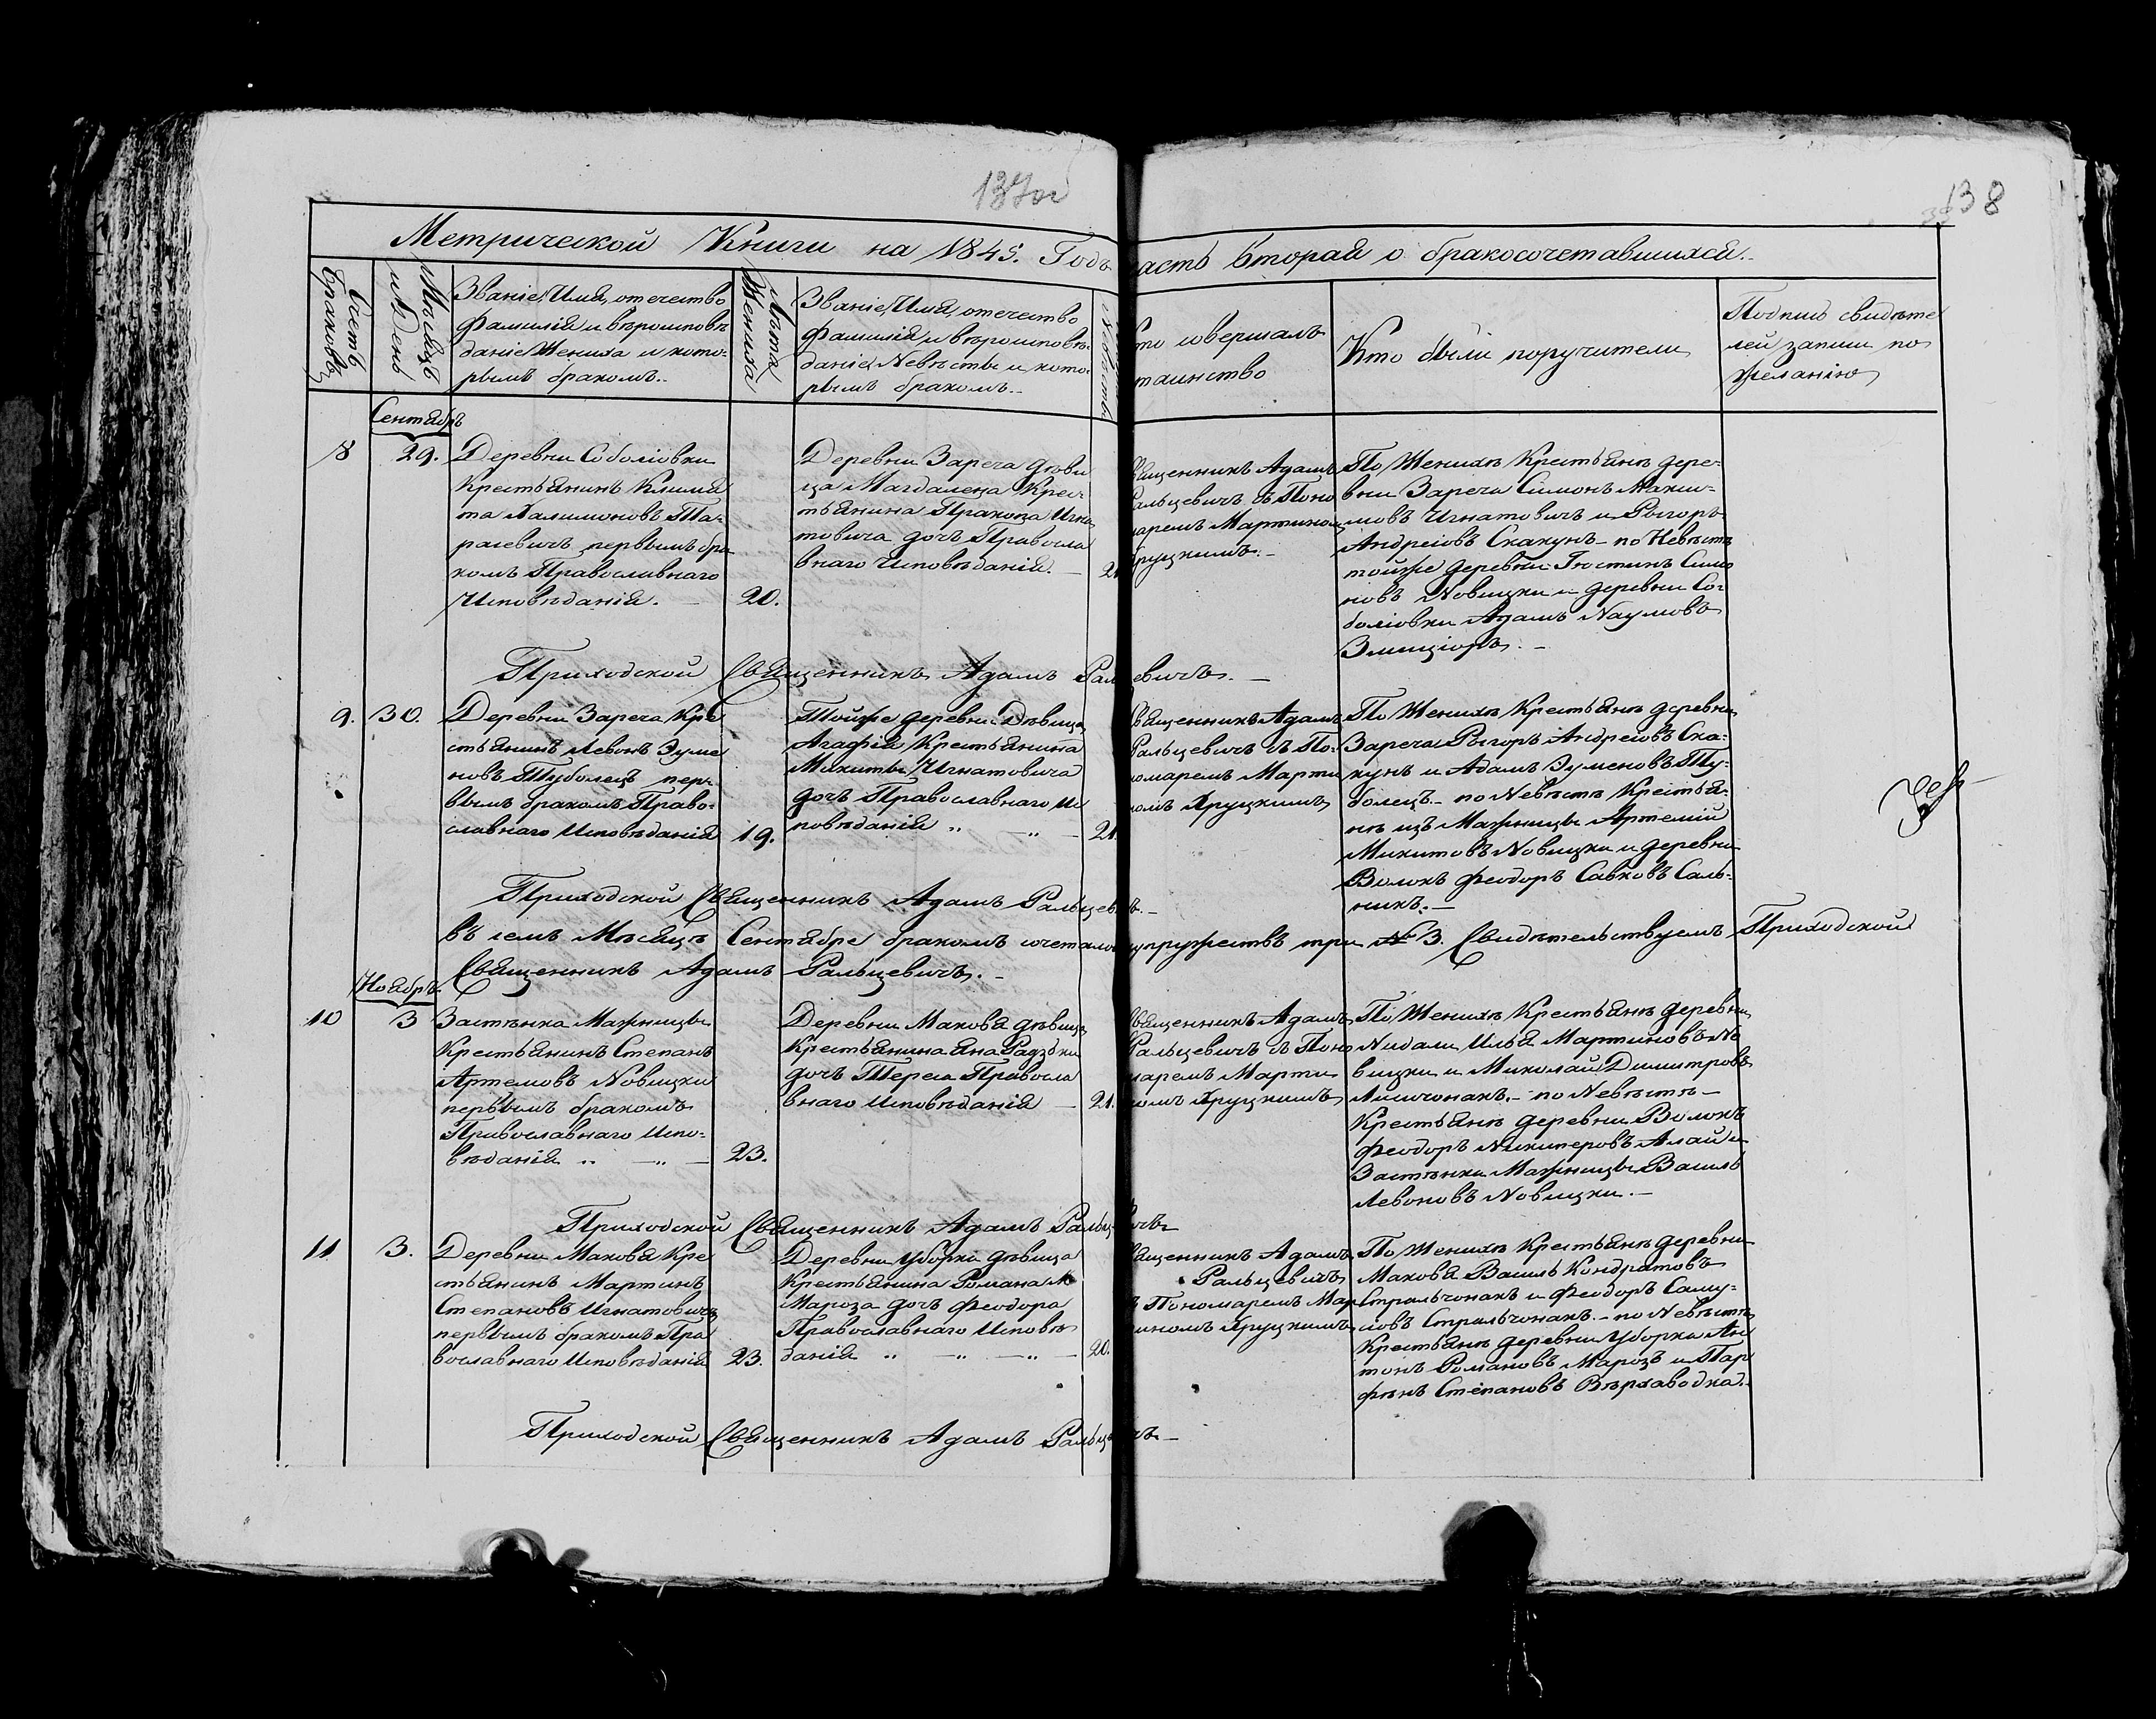 137об
138
Метрической Книги на 1845. Годъ
асть вторая о бракосочетавшихся.
Счетъ браковъ
Мѣсяцъ и День
Званіе, Имя, отечество
фамилія и вѣроисповѣ
даніе Жениха и кото-
рымъ бракомъ.
Лѣта Жениха
Званіе, Имя, отечество
фамилія и вѣроисповѣ-
даніе Невѣсты и кото-
рымъ бракомъ.
Невѣсты
то совершалъ
таинство
Кто были поручители
Подпись свидѣте
лей записи по
желанію
Сентябрь
8
29.
Деревни Соболіовки
Крестьянинъ Клима
та Халимоновъ Та-
расевичъ первымъ бра
комъ Православнаго
Исповѣданія.
20.
Деревни Зареча дѣви
ца Магдалена Крес
тьянина Пракопа Игна
товича дочъ Правосла
внаго Исповѣданія.
2
вященникъ Адамъ
Ральцевичъ съ Поно
маремъ Мартином
Хруцкимъ.
По Женихѣ Крестьянѣ дере-
вни Зареча Симонъ Макси-
мовъ Игнатовичъ и Рыгоръ
Андреіовъ Скакунъ - по Невѣстѣ
тойже деревни Іюстинъ Симо
новъ Новицки и деревни Со-
боліовки Адамъ Наумовъ
Змиціоръ.
Приходской Священникъ Адамъ Рал евичъ.
9.
30.
Деревни Зареча Кре
стьянинъ Левонъ Зуме
новъ Туболецъ пер-
вымъ бракомъ Право-
славнаго Исповѣданія
19.
Тойже деревни Дѣвица
Агафія Крестьянина
Микиты Игнатовича
дочъ Православнаго Ис
повѣданія „ — „ —
21.
вященникъ Адамъ
Ральцевичъ съ По-
номаремъ Марти
номъ Хруцкимъ
По Женихѣ Крестьянѣ деревни
Зареча Рыгоръ Андреіовъ Ска-
кунъ и Адамъ Зуменовъ Ту-
болецъ. - по Невѣстѣ Крестья-
нѣ изъ Мажницы Артемій
Микитовъ Новицки и деревни
Волокъ Феодоръ Савковъ Саль-
никъ.
Приходской Священникъ Адамъ Ральцев ъ.
въ семъ Мѣсяцѣ Сентябре бракомъ сочетало упружествъ три № 3. Свидѣтельствуемъ Приходской
Священникъ Адамъ Ральцевичъ.
Ноябрь
10
3
Застѣнка Мажницы
Крестьянинъ Степанъ
Артемовъ Новицки
первымъ бракомъ
Православнаго Испо-
вѣданія „ — „ —
23.
Деревни Макова дѣвица
Крестьянина Яна Радзѣки
дочъ Тереса Правосла
внаго Исповѣданія
21.
вященникъ Адамъ
Ральцевичъ съ Поно
маремъ Марти
номъ Хруцкимъ
По Женихѣ Крестьянѣ деревни
Нидали Илья Мартиновъ Но
вицки и Миколай Димитровъ
Лисичонакъ. - по Невѣстѣ -
Крестьянѣ деревни Волокъ
Феодоръ Никиперовъ Алай и
Застѣнка Мажницы Василь
Левоновъ Новицки.
Приходской Священникъ Адамъ Ральц чъ
11
3.
Деревни Макова Кре
стьянинъ Мартинъ
Степановъ Игнатовичъ
первымъ бракомъ Пра
вославнаго Исповѣданія
23.
Деревни Уборка дѣвица
Крестьянина Романа М
Мароза дочъ Феодора
Православнаго Исповѣ
данія „ — „ — „ —
20.
ященникъ Адамъ
Ральцевичъ
ъ Пономаремъ Мар
тиномъ Хруцкимъ
По Женихѣ Крестьянѣ деревни
Макова Василь Кондратовъ
Стральчонакъ и Феодоръ Саму-
иовъ Стральчонакъ. - по Невѣстѣ
Крестьянѣ деревни Уборка Ан
тонъ Романовъ Марозъ и Пар
фѣнъ Степановъ Вѣрхаводка.
Приходской Священникъ Адамъ Ральц чъ.